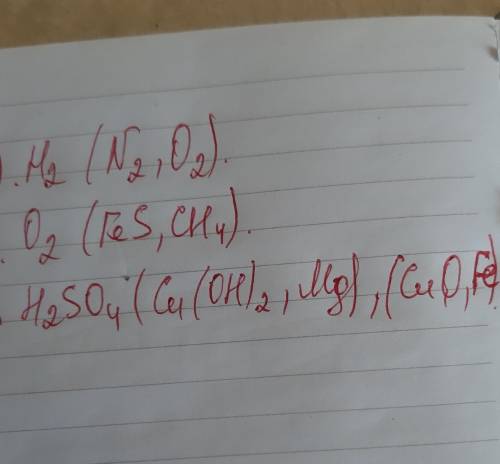 ). H₂ (N₂, O₂).
. O₂ (FeS, CH₄).
. H₂SO₄ (Cu(OH)₂, Mg), (CuO, Fe)